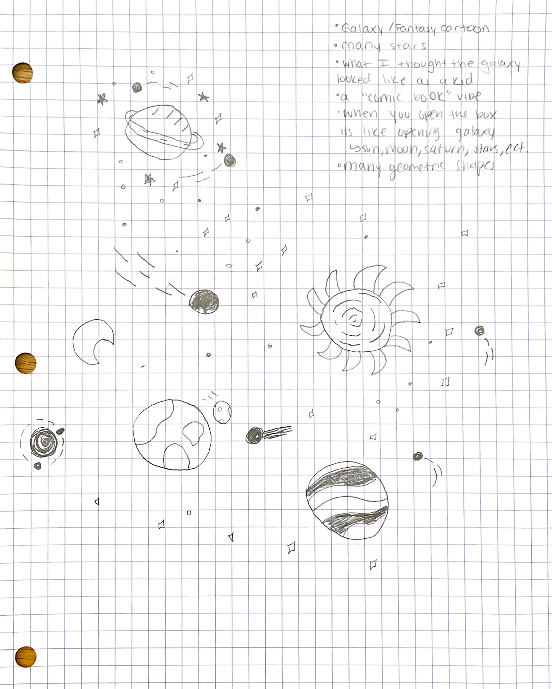 • Galaxy/Fantasy cartoon
• many stars
• what I thought the galaxy
looked like as a kid
• a "comic book" vibe
• when you open the box
its like opening galaxy
↳ sun, moon, saturn, stars, ect.
• many geometric shapes